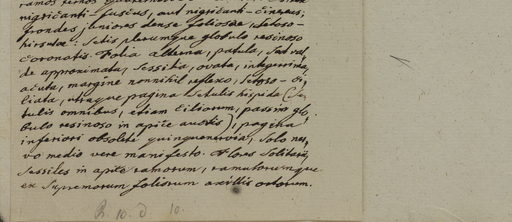 ramos
nigricanti-fuscus, aut nigricanti-cinereus;
frondes juniores dense foliosae, setoso-
hirsutae: Setis plerumque globulo resinoso
coronatis. Folia alterna, patula, Sed val-
de approximata, Sessilia, ovata, integerrima,
acuta, margine nonnihil reflexo, setoso-ci-
liata, utraque pagina setulis hispida (Se-
tulis omnibus, etiam ciliorum, passim glo-
bulo resinoso in apice auctis), pagina
inferiori obsolete quinquenervia, Solo ner-
vo medio vere manifesto. Flores Solitarii,
Sessiles in apice ramorum, ramulorumque
ex Supremorum foliorum axillis ortorum.
R. 10. d 10.